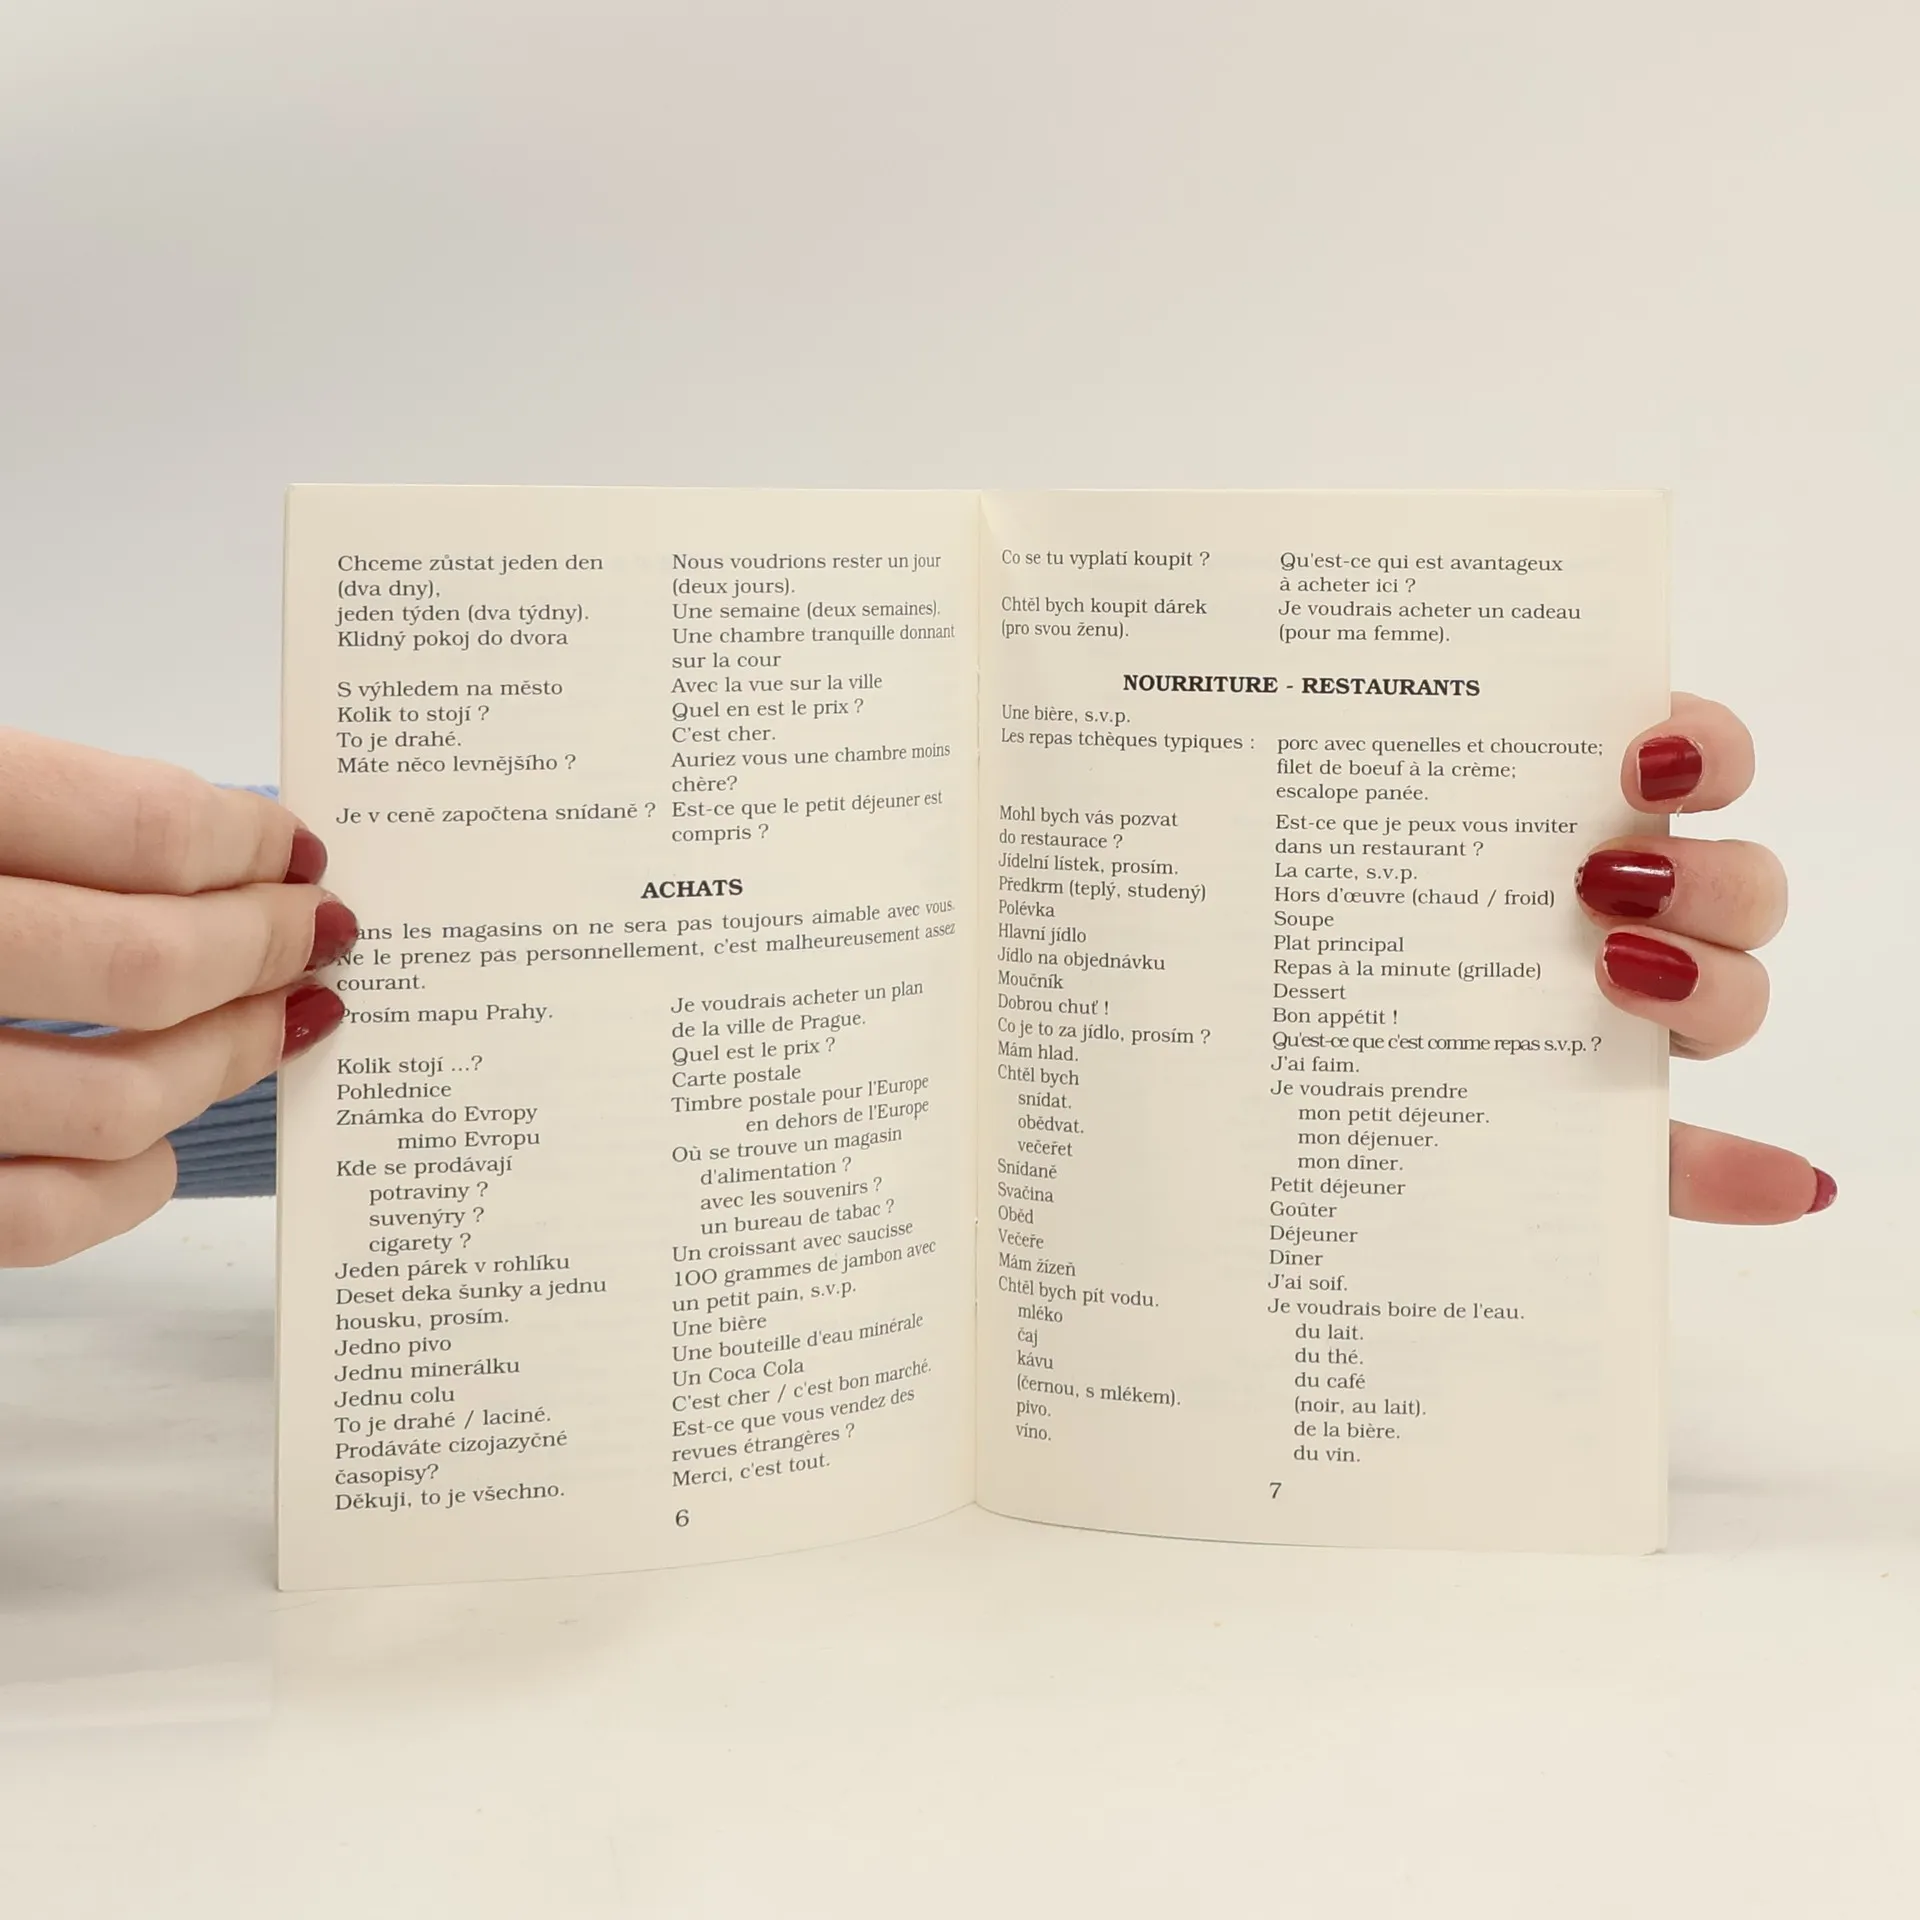 Chceme zůstat jeden den Nous voudrions rester un jour
(dva dny), (deux jours).
jeden týden (dva týdny). Une semaine (deux semaines).
Klidný pokoj do dvora Une chambre tranquille donnant
sur la cour
S výhledem na město Avec la vue sur la ville
Kolik to stojí ? Quel en est le prix ?
To je drahé. C'est cher.
Máte něco levnějšího ? Auriez vous une chambre moins
chère?
Je v ceně započtena snídaně ? Est-ce que le petit déjeuner est
compris ?
ACHATS
les magasins on ne sera pas toujours aimable avec vous.
Ne le prenez pas personnellement, c'est malheureusement assez
courant.
Prosím mapu Prahy. Je voudrais acheter un plan
de la ville de Prague.
Kolik stojí ...? Quel est le prix ?
Pohlednice Carte postale
Známka do Evropy Timbre postale pour l'Europe
mimo Evropu en dehors de l'Europe
Kde se prodávají Où se trouve un magasin
potraviny ? d'alimentation ?
suvenýry ? avec les souvenirs ?
cigarety ? un bureau de tabac ?
Jeden párek v rohlíku Un croissant avec saucisse
Deset deka šunky a jednu 100 grammes de jambon avec
housku, prosím. un petit pain, s.v.p.
Jedno pivo Une bière
Jednu minerálku Une bouteille d'eau minérale
Jednu colu Un Coca Cola
To je drahé / laciné. C'est cher / c'est bon marché.
Prodáváte cizojazyčné Est-ce que vous vendez des
časopisy? revues étrangères ?
Děkuji, to je všechno. Merci, c'est tout.
6
Co se tu vyplatí koupit ? Qu'est-ce qui est avantageux
à acheter ici ?
Chtěl bych koupit dárek Je voudrais acheter un cadeau
(pro svou ženu). (pour ma femme).
NOURRITURE - RESTAURANTS
Une bière, s.v.p.
Les repas tchèques typiques : porc avec quenelles et choucroute;
filet de boeuf à la crème;
escalope panée.
Mohl bych vás pozvat Est-ce que je peux vous inviter
do restaurace ? dans un restaurant ?
Jídelní lístek, prosím. La carte, s.v.p.
Předkrm (teplý, studený) Hors d'œuvre (chaud / froid)
Polévka Soupe
Hlavní jídlo Plat principal
Jídlo na objednávku Repas à la minute (grillade)
Moučník Dessert
Dobrou chuť ! Bon appétit !
Co je to za jídlo, prosím ? Qu'est-ce que c'est comme repas s.v.p. ?
Mám hlad. J'ai faim.
Chtěl bych Je voudrais prendre
snídat. mon petit déjeuner.
obědvat. mon déjenuer.
večeřet mon dîner.
Snídaně Petit déjeuner
Svačina Goûter
Oběd Déjeuner
Večeře Dîner
Mám žízeň J'ai soif.
Chtěl bych pít vodu. Je voudrais boire de l'eau.
mléko du lait.
čaj du thé.
kávu du café
(černou, s mlékem). (noir, au lait).
pivo. de la bière.
víno. du vin.
7